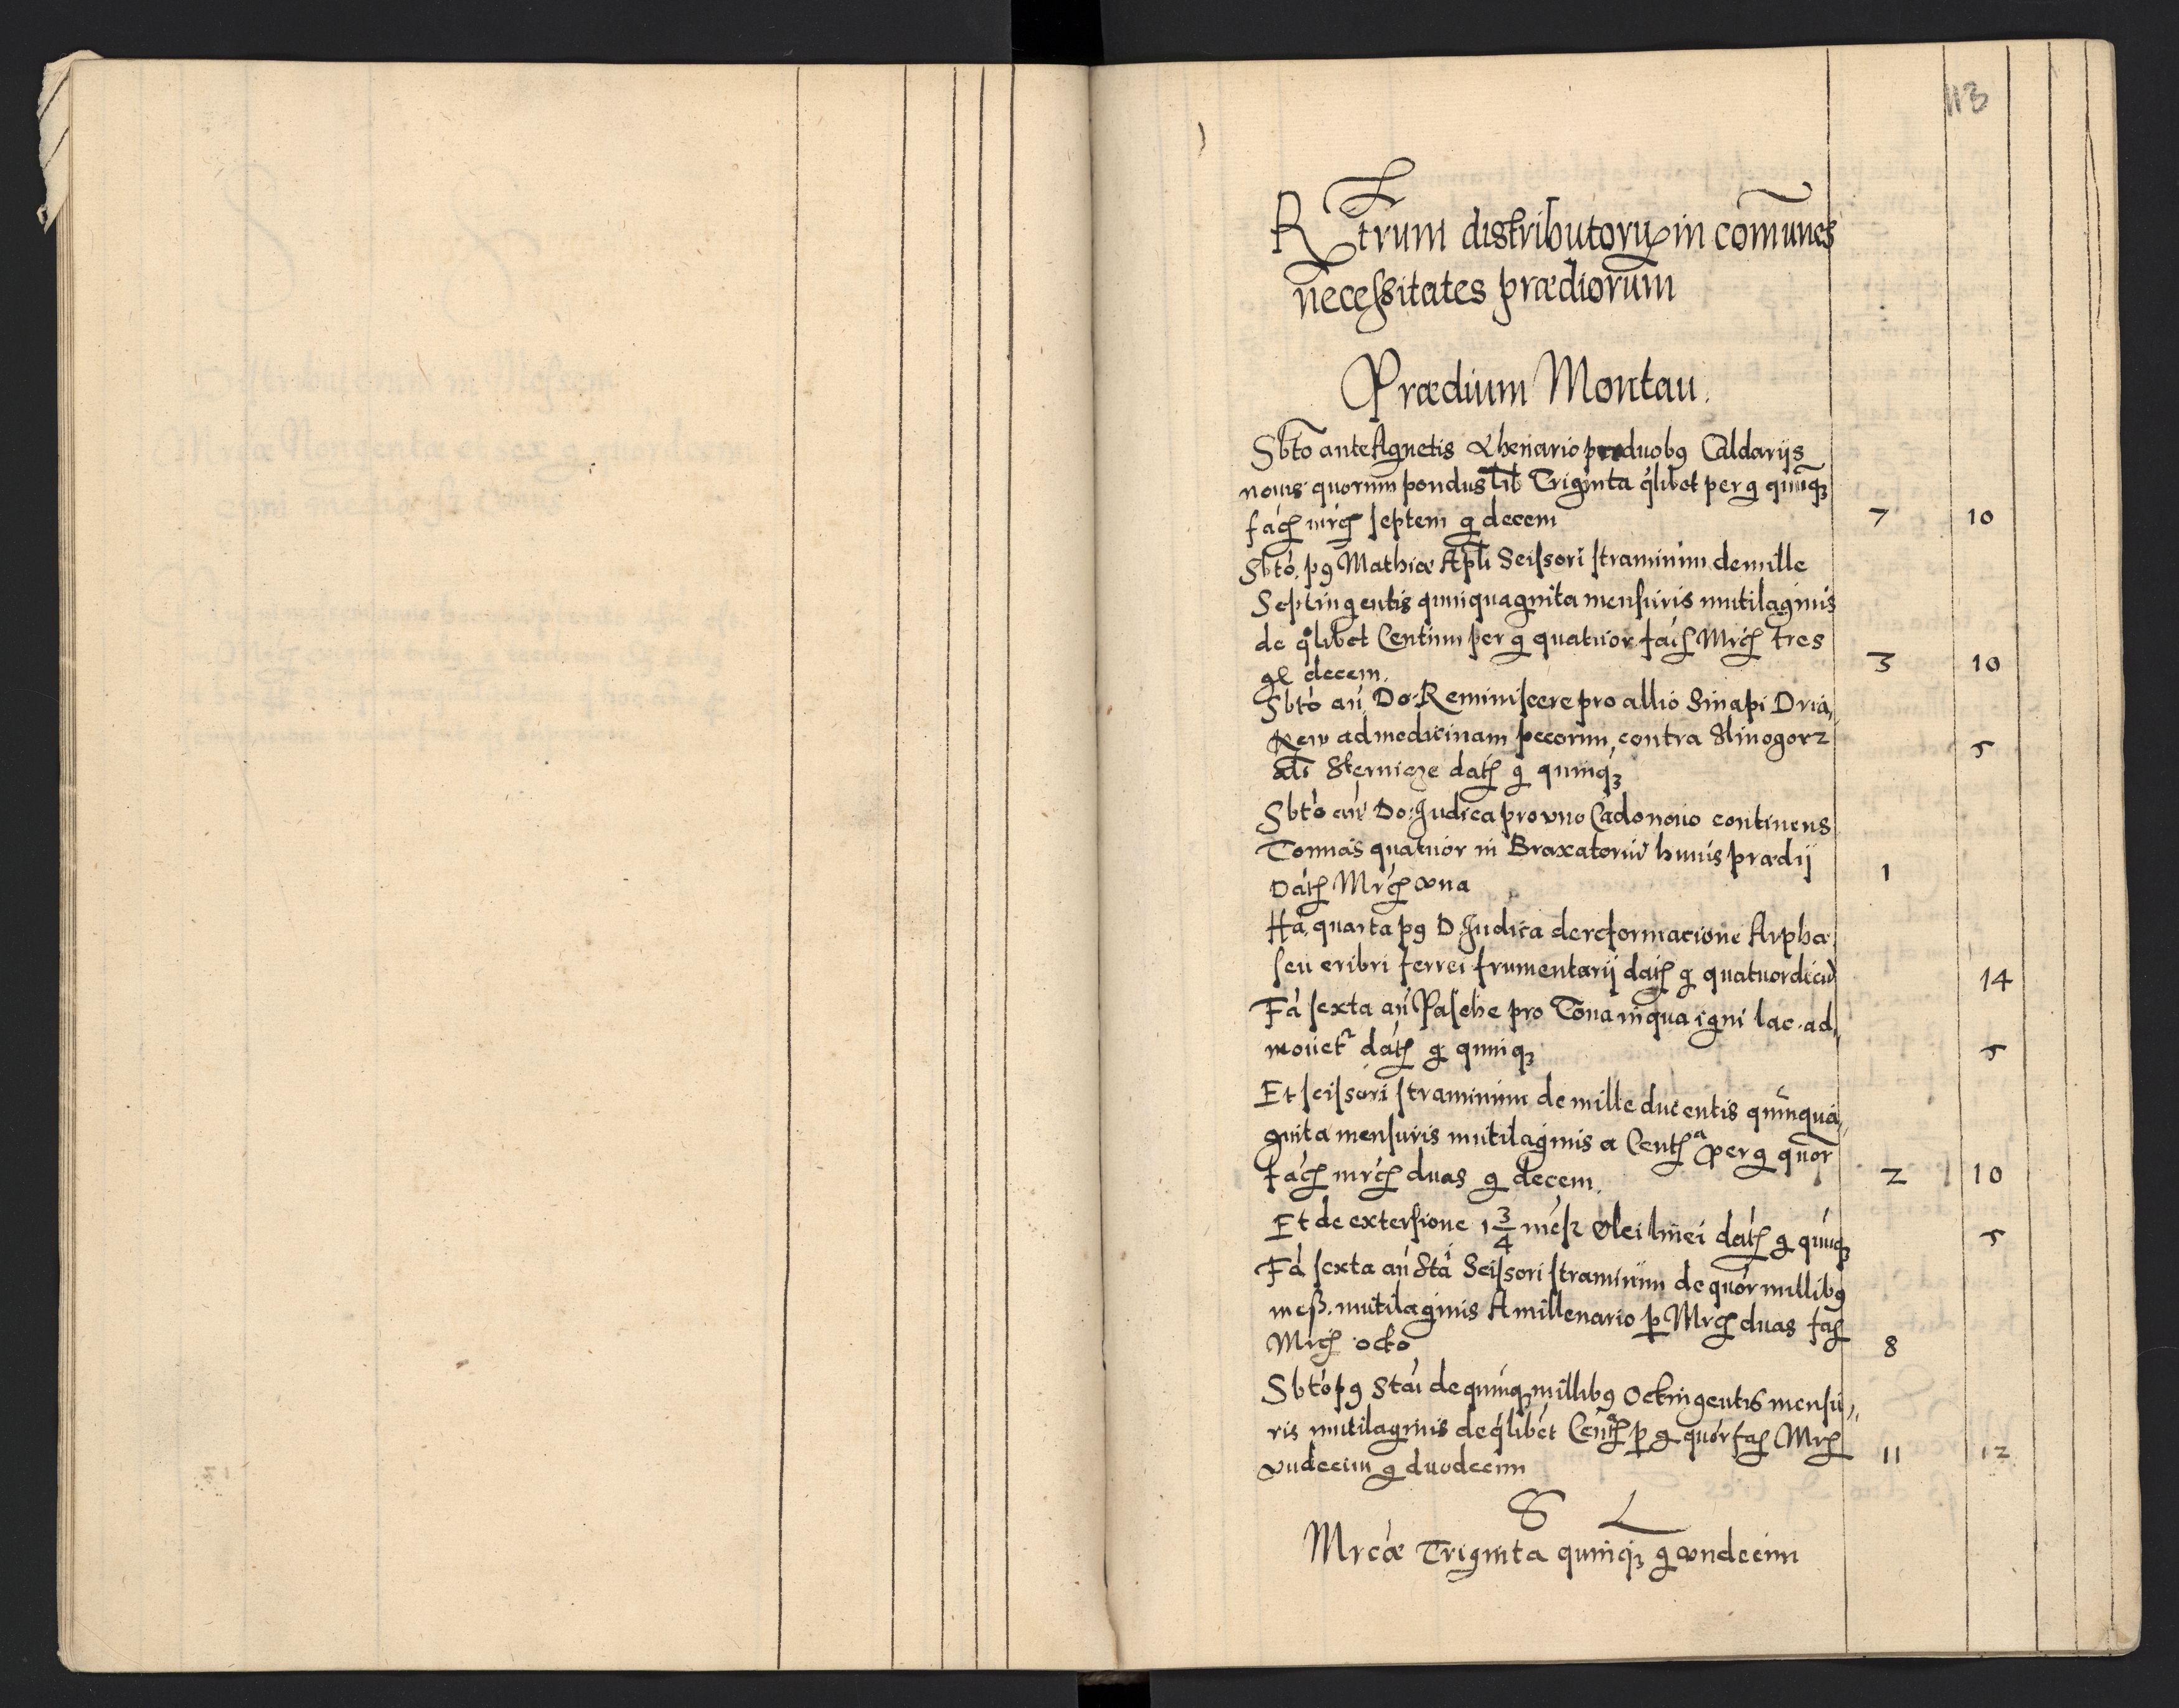 113
Rtrum distributorũ in cõmunes
necessitates prædiorum
Prædium Montau.
Sbto ante Agnetis Ahenario pro duobꝫ Caldarijs
nouis quorum pondus lib Triginta q̃libet per g quinqꝫ
facꝭ mrcꝭ septem g decem 7 10
Sbto pꝰ Mathiæ Apli Scissori straminum de mille
Septingentis quinquaginta mensuris mutilaginis
de q̊libet Centum per g quatuor facꝭ Mrcꝭ tres
g decem. 3 10
Sbto añ Do: Reminiscere pro allio Sinapi Dria,,
ad medicinam pecorum contra
datꝭ g quinqꝫ 5
Sbto añ Do: Judica pro vno Cado nouo continens
Tonnas quatuor in Braxatoriũ huius prædij
Datꝭ Mrcꝭ vna 1
quarta pꝰ D. Judica de reformacione Arphæ
seu cribri ferrei frumentarij datꝭ g quatuordeciũ 14
Fa sexta añ Pasche pro Tona in qua igni lac ad,,
mouetr datꝭ g quinqꝫ 5
Et scissori straminum de mille ducentis quinqua,,
ginta mensuris mutilaginis a Centꝭ per g quor
facꝭ mrcꝭ duas g decem. 2 10
Et de extersione 1 3/4 mẽsz Olei linei datꝭ g quinqꝫ 5
Fa sexta añ Sta Scissori straminum de quor millibꝰ
mesz. mutilaginis A millenario p Mrcꝭ duas facꝭ
Mrcꝭ octo 8
Sbto pꝰ Sta de quinqꝫ millibꝰ Octingentis mensu,,
ris mutilaginis de q̃libet Centꝭ p g quor facꝭ Mrcꝭ
vndecim g duodecim 11 12
S L
Mrcæ Triginta quinqꝫ g vndecim